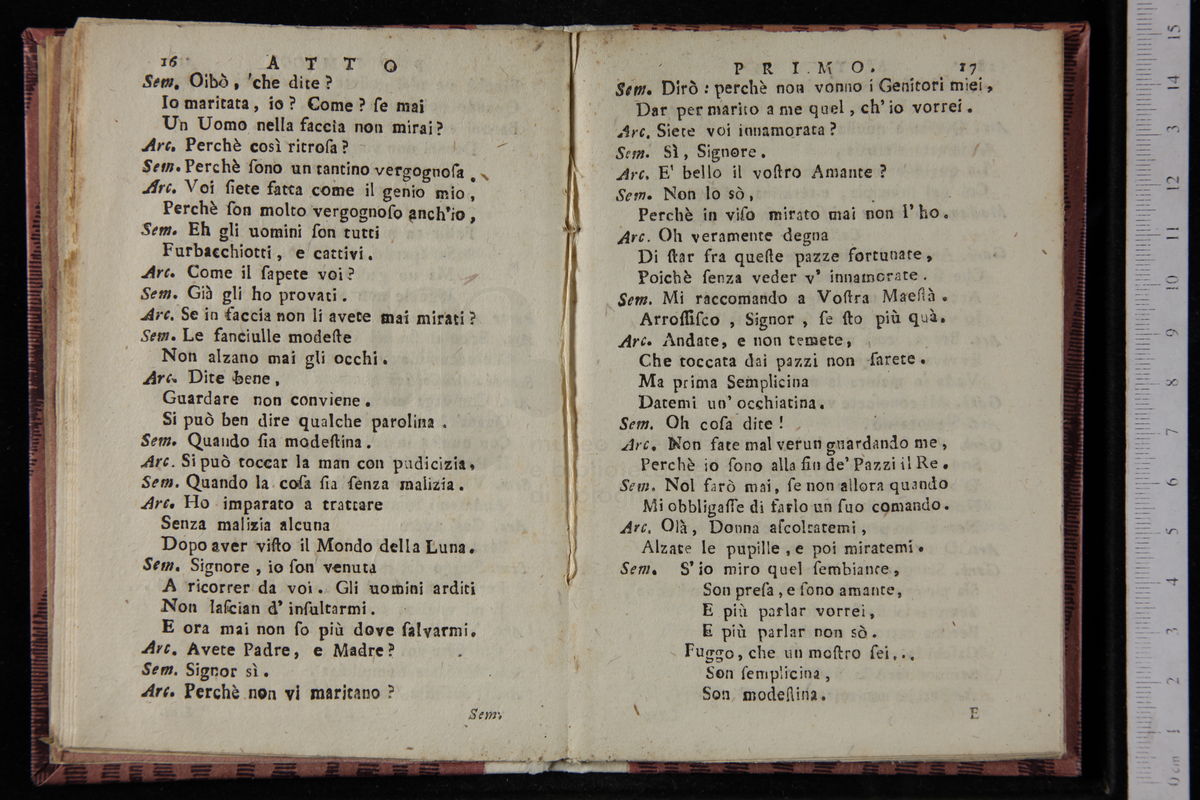 16 ATTO
Sem. Oibò, 'che dite?
Io maritata, io? Come? ſe mai
Un Uomo nella faccia non mirai?
Arc. Perchè così ritroſa?
Sem. Perchè ſono un tantino vergognoſa.
Arc. Voi ſiete fatta come il genio mio,
Perchè ſon molto vergognoſo anch'io,
Sem. Eh gli uomini ſon tutti
Furbacchiotti, e cattivi.
Arc. Come il ſapete voi?
Sem. Già gli ho provati.
Arc. Se in faccia non li avete mai mirati?
Sem. Le fanciulle modeſte
Non alzano mai gli occhi.
Arc. Dite bene,
Guardare non conviene.
Si può ben dire qualche parolina.
Sem. Quando ſia modeſtina.
Arc. Si può toccar la man con pudicizia,
Sem. Quando la coſa ſia ſenza malizia.
Arc. Ho imparato a trattare
Senza malizia alcuna
Dopo aver viſto il Mondo della Luna.
Sem. Signore, io ſon venuta
A ricorrer da voi. Gli uomini arditi
Non laſcian d'inſultarmi.
E ora mai non ſo più dove ſalvarmi.
Arc. Avete Padre, e Madre?
Sem. Signor sì.
Arc. Perchè non vi maritano?
Sem.
PRIMO. 17
Sem. Dirò: perchè non vonno i Genitori miei,
Dar per marito a me quel, ch'io vorrei.
Arc. Siete voi innamorata?
Sem. Sì, Signore.
Arc. E' bello il voſtro Amante?
Sem. Non lo sò,
Perchè in viſo mirato mai non l'ho.
Arc. Oh veramente degna
Di ſtar fra queſte pazze fortunate,
Poichè ſenza veder v'innamorate.
Sem. Mi raccomando a Voſtra Maeſtà.
Arroſſiſco, Signor, ſe ſto più quà.
Arc. Andate, e non temete,
Che toccata dai pazzi non ſarete.
Ma prima Semplicina
Datemi un'occhiatina.
Sem. Oh coſa dite!
Arc. Non fate mal verun guardando me,
Perchè io ſono alla fin de'Pazzi il Re.
Sem. Nol farò mai, ſe non allora quando
Mi obbligaſſe di farlo un ſuo comando.
Arc. Olà, Donna aſcoltatemi,
Alzate le pupille, e poi miratemi.
Sem. S'io miro quel ſembiante,
Son preſa, e ſono amante,
E più parlar vorrei,
E più parlar non sò.
Fuggo, che un moſtro ſei...
Son ſemplicina,
Son modeſtina.
E
15
14
13
12
11
10
9
8
7
6
5
4
3
2
1
0 cm